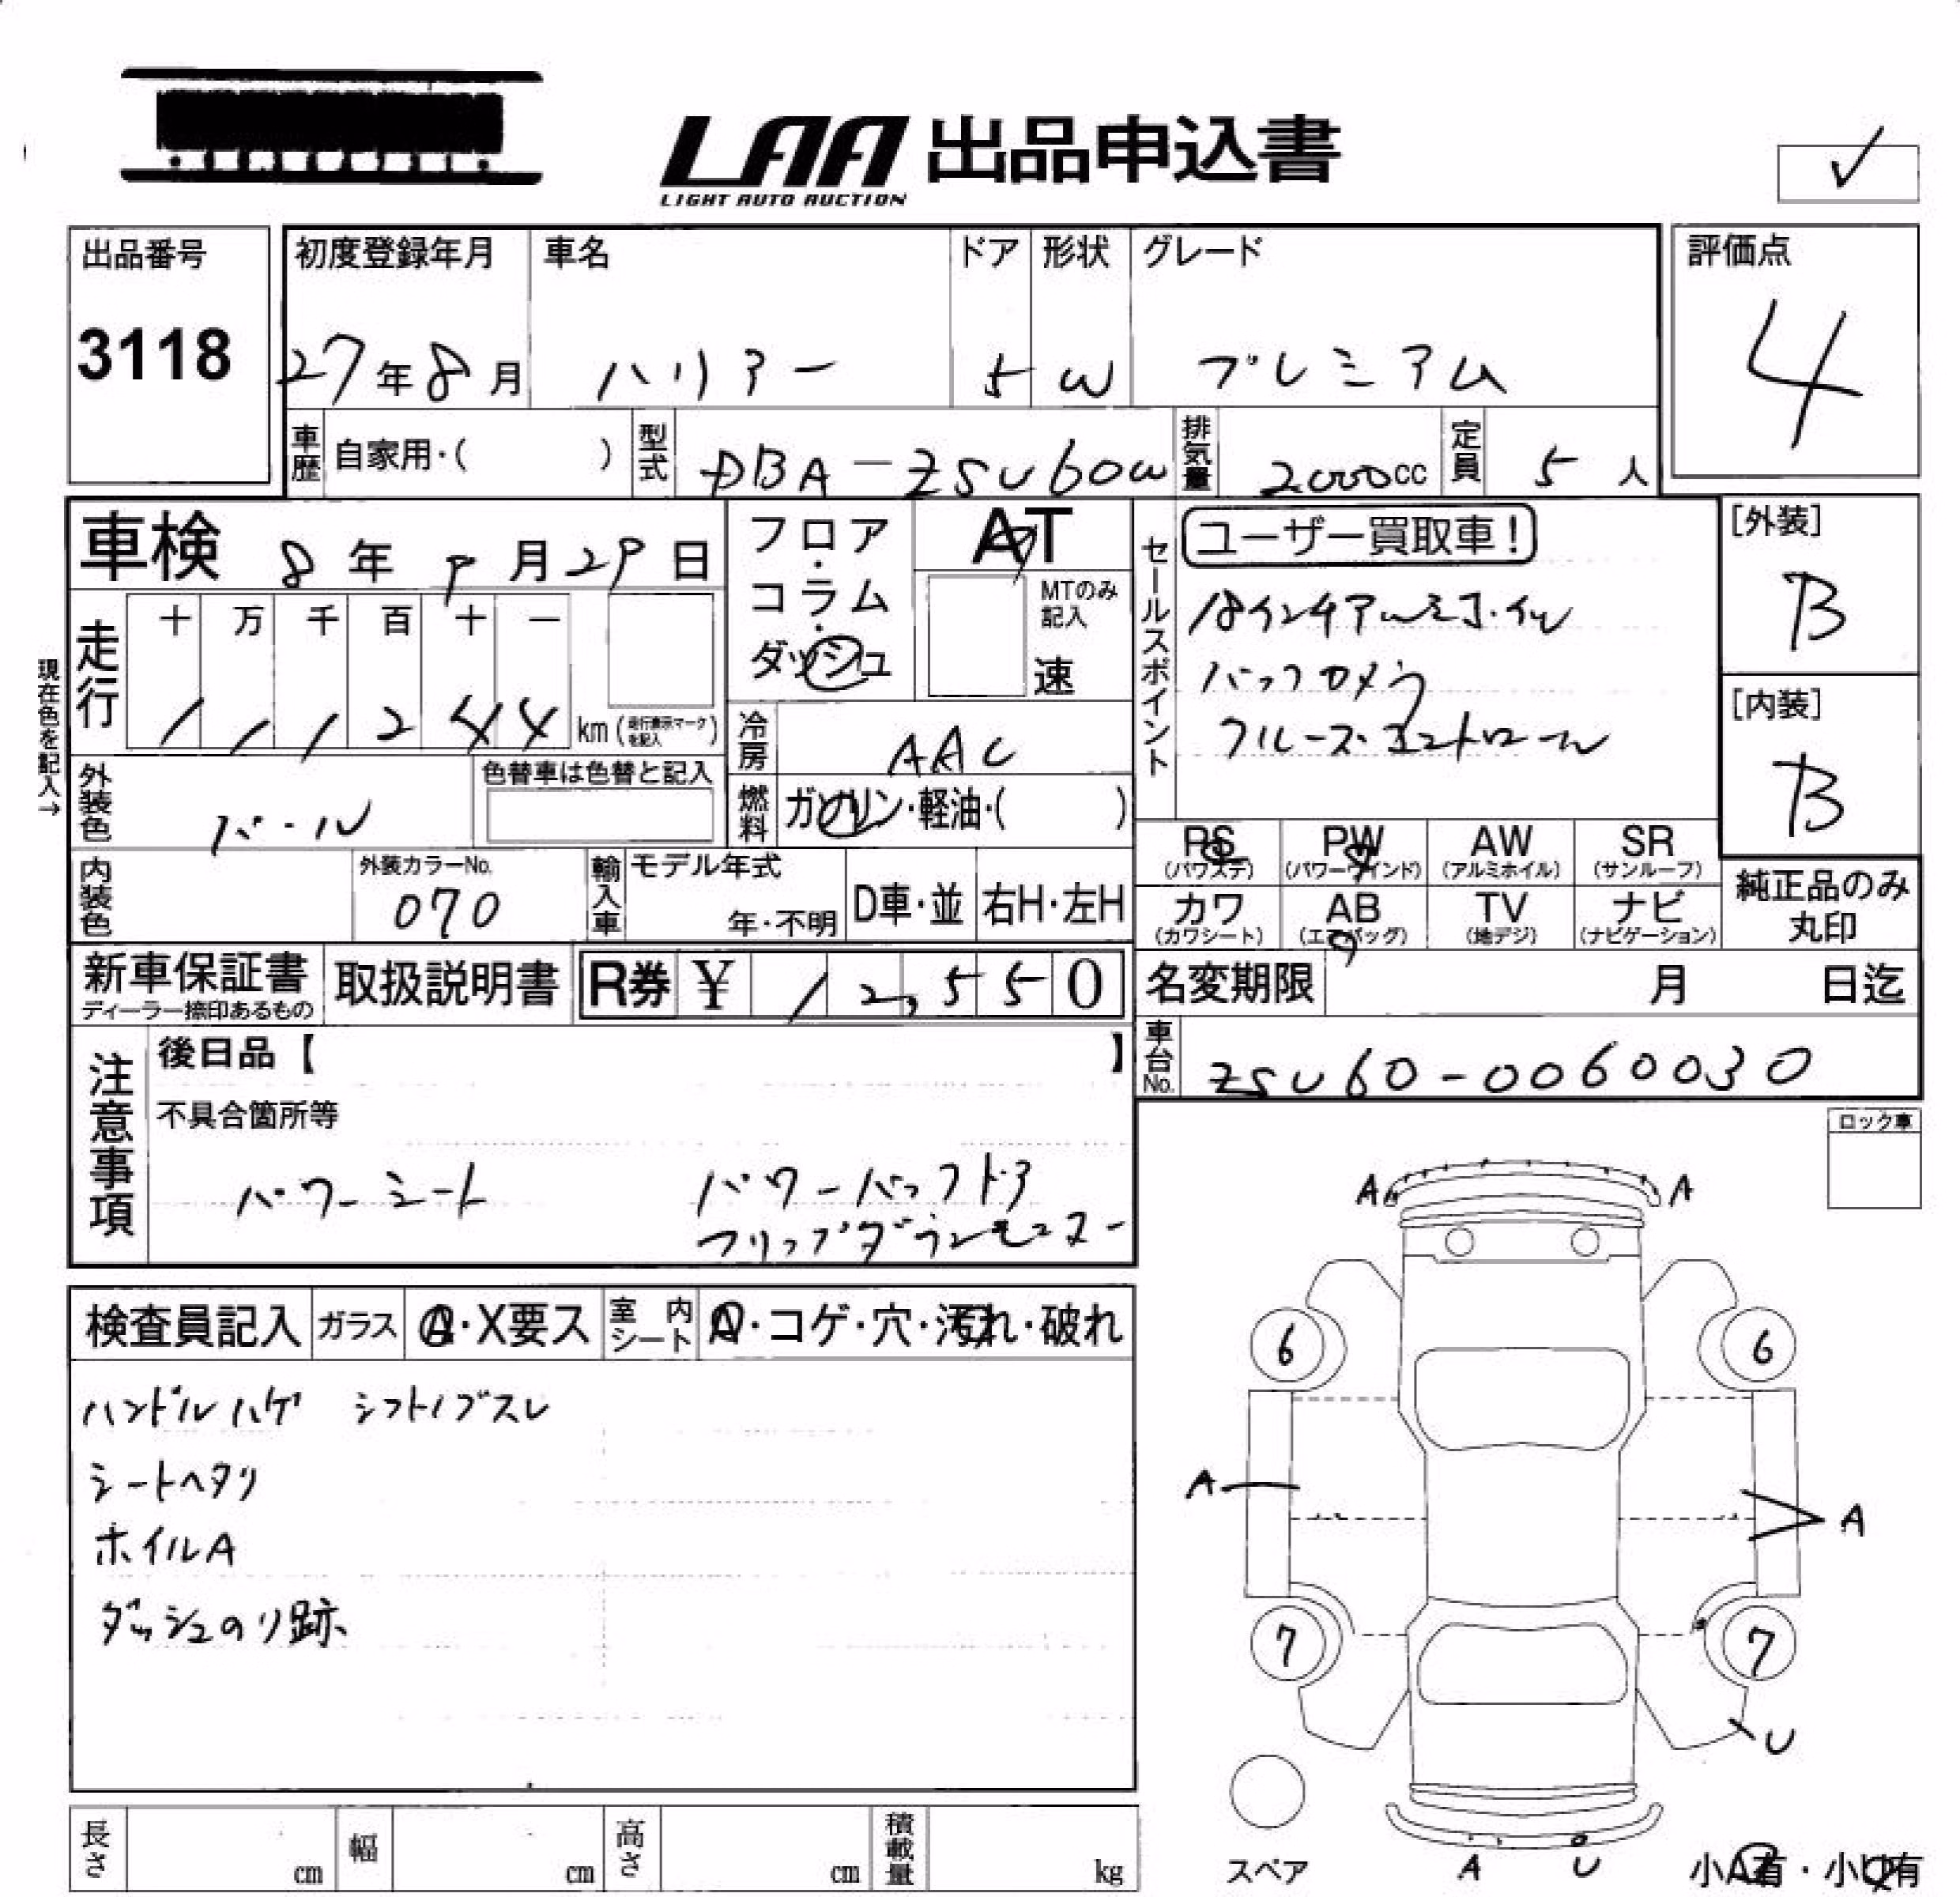 LAA 出品申込書
LIGHT AUTO AUCTION
✓
出品番号
3118
初度登録年月
27年8月
車名
ハリアー
ドア
5
形状
W
グレード
プレミアム
評価点
4
車歴 自家用・( )
型式 DBA-ZSU60W
排気量 2000cc
定員 5人
車検 8年9月29日
フロア・コラム・ダッシュ
AT
MTのみ記入
速
セールスポイント
ユーザー買取車!
18インチアルミホイル
バックカメラ
クルーズコントロール
[外装]
B
[内装]
B
現在色を記入→
走行
十 万 千 百 十 一
1 1 1 2 4 4 km(走行表示マークを記入)
冷房 AAC
外装色 パール
色替車は色替と記入
燃料 ガソリン・軽油・( )
PS (パワステ)
PW (パワーウインド)
AW (アルミホイル)
SR (サンルーフ)
内装色
外装カラーNo.
070
輸入車
モデル年式
年・不明
D車・並
右H・左H
カワ (カワシート)
AB (エアバッグ)
TV (地デジ)
ナビ (ナビゲーション)
純正品のみ丸印
新車保証書
ディーラー捺印あるもの
取扱説明書
R券 ¥ 12,550
名変期限 月 日迄
車台No. ZSU60-0060030
注意事項
後日品【 】
不具合箇所等
パワーシート パワーバックドア
フリップダウンモニター
ロック車
検査員記入
ガラス A・X要ス
室内シート A・コゲ・穴・汚れ・破れ
ハンドルハゲ シフトノブスレ
シートヘタリ
ホイルA
ダッシュのり跡
A A
6 6
A A
7 7
U
スペア
A U
小A有・小U有
長さ cm
幅 cm
高さ cm
積載量 kg